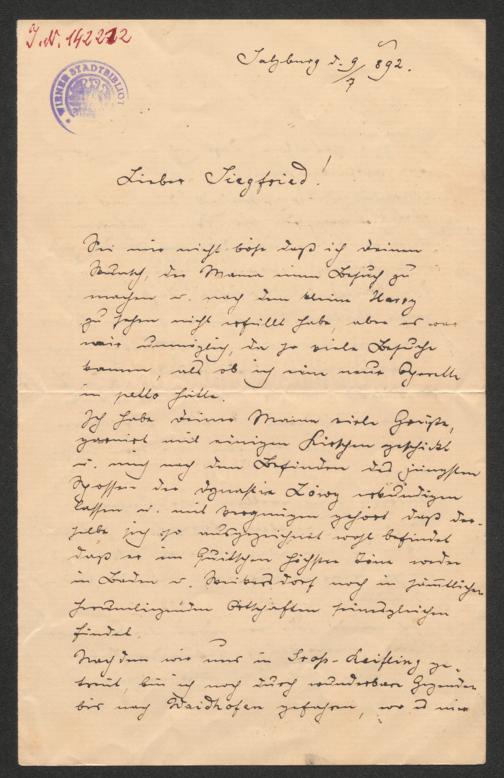 J. N. 142212
WIENER STADTBIBLIOT
Salzburg d. 9/7 892.
Lieber Siegfried!
Sei mir nicht böse daß ich deinen
Wunsch, der Mama einen Besuch zu
machen u. nach dem kleinen Harry
zu sehen nicht erfüllt habe, aber es war
mir unmöglich, da so viele Besuche
kamen, als ob ich eine neue Operette
in petto hätte.
Ich habe deiner Mama viele Grüße,
garnirt mit einigen Kirschen geschickt
u. mich nach dem Befinden des jüngsten
Sprossen der Dynastie Löwy erkundigen
lassen u. mit Vergnügen gehört daß der-
selbe sich so ausgezeichnet wohl befindet
daß er im Quitschen höchster Töne weder
in Baden u. Weikersdorf noch in sämmtlichen
herumliegenden Ortschaften seinesgleichen
findet.
Nachdem wir uns in Groß-Reifling ge-
trennt, bin ich noch durch wunderbare Gegenden
bis nach Waidhofen gefahren, wo mir